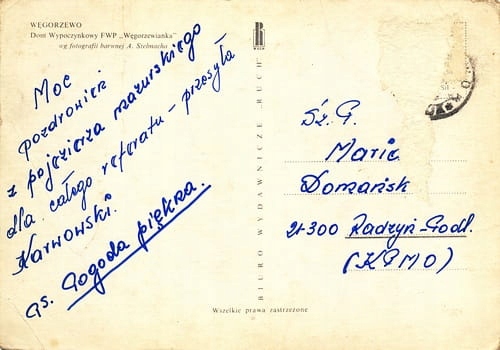 WĘGORZEWO
Dom Wypoczynkowy FWP „Węgorzewianka”
wg fotografii barwnej A. Stelmacha
Moc
pozdrowień
z pojezierza mazurskiego
dla całego referatu - przesyła
Karwowski.
Ps. Pogoda piękna.
BIURO WYDAWNICZE „RUCH”
RUCH
Sz. P.
Maria
Domańsk
21-300 Radzyń-Podl.
(KPMO)
Wszelkie prawa zastrzeżone